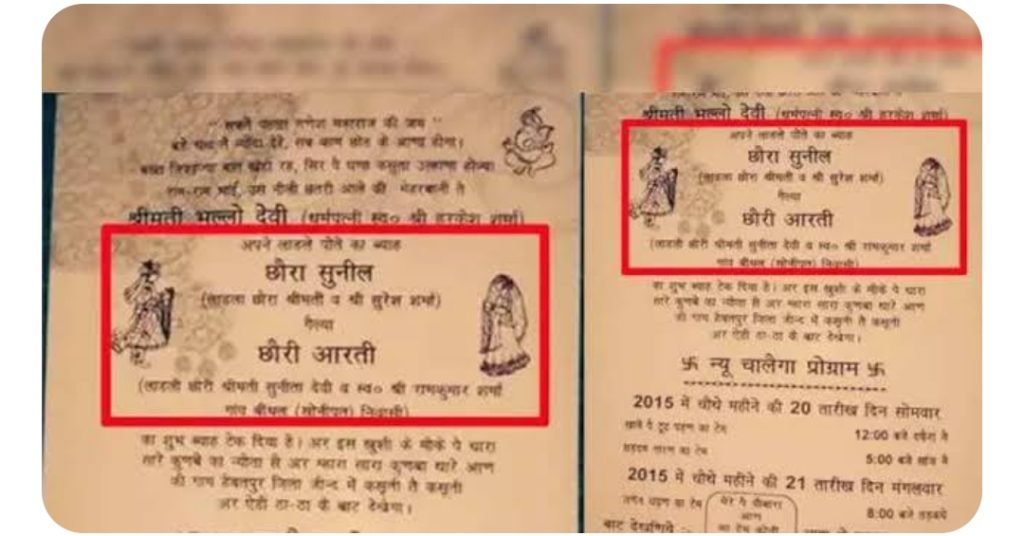 " सबते पहल्या गणेश महाराज की जय "
राम-राम भाई, उस नीली छतरी आले की मेहरबानी तै
श्रीमती भल्लो देवी (धर्मपत्नी स्व० श्री हरकेश शर्मा)
अपने लाडले पोते का ब्याह
छौरा सुनील
(लाडला छोरा श्रीमती व श्री सुरेश शर्मा)
गैल्या
छौरी आरती
(लाडली छोरी श्रीमती सुनीता देवी व स्व० श्री रामकुमार शर्मा
गांव बीधल (सोनीपत) निवासी)
का शुभ ब्याह टेक दिया है। अर इस खुशी के मौके पे थारा
सारे कुणबे का न्योता सै अर म्हारा सारा कुणबा थारे आण
की गाम हैबतपुर जिला जीन्द में कसुती तै कसुती
अर ऐंडी ठा-ठा के बाट देखेगा।
श्रीमती भल्लो देवी (धर्मपत्नी स्व० श्री हरकेश शर्मा)
अपने लाडले पोते का ब्याह
छौरा सुनील
(लाडला छोरा श्रीमती व श्री सुरेश शर्मा)
गैल्या
छौरी आरती
(लाडली छोरी श्रीमती सुनीता देवी व स्व० श्री रामकुमार शर्मा
गांव बीधल (सोनीपत) निवासी)
का शुभ ब्याह टेक दिया है। अर इस खुशी के मौके पे थारा
सारे कुणबे का न्योता सै अर म्हारा सारा कुणबा थारे आण
की गाम हैबतपुर जिला जीन्द में कसुती तै कसुती
अर ऐंडी ठा-ठा के बाट देखेगा।
卐 न्यू चालैगा प्रोग्राम 卐
2015 में चौथे महीने की 20 तारीख दिन सोमवार
12:00 बजे
5:00 बजे सांझ नै
2015 में चौथे महीने की 21 तारीख दिन मंगलवार
8:00 बजे तड़कै
बाट देखणिये :-